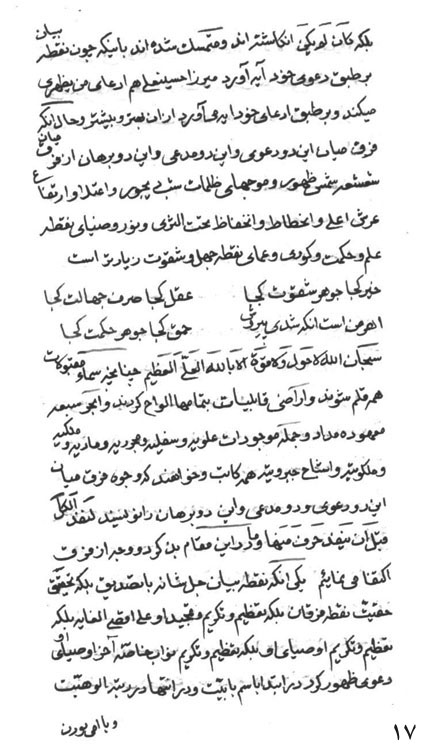 بلکه کان لم یکن انگاشته اند و متمسک شده اند باینکه چون نقطه بیان
بر طبق دعوی خود آیه آورد میرزا حسینعلی هم ادعای من یظهری
میکند و بر طبق ادعای خود آیه می آورد از آن بهتر و بیشتر و حال آنکه
فرق میان این دو دعوی و این دو مدعی و این دو برهان از فرق میانه
شعشعه شمس ظهور و موجهای ظلمات شب دیجور و اعتلا و ارتفاع
عرش اعلی و انحطاط و انخفاظ تحت الثری و نور و ضیای نقطه
علم و حکمت و کوری و عمای نقطه جهل و شقوت زیادتر است
خیر کجا جوهر شقوت کجا عقل کجا صرف جهالت کجا
اهرمن است آنکه شدی پیروش حمق کجا جوهر حکمت کجا
سبحان الله لا حول و لا قوة الا بالله العلی العظیم چنانچه سماء مقبولات
همه قلم شوند و اراضی قابلیات بتمامها الواح گردند و ابحر سبعه
معهوده مداد و جمله موجودات علویه و سفلیه و حوریه و مادیه و ملکیه
و ملکوتیه و اشباح جبروتیه همه کاتب و خواهند که وجوه فرق میان
این دو دعوی و دو مدعی و این دو برهان را نویسند لنفد الکل
قبل ان ینفد حرف منها و ما در این مقام بذکر دو وجه از فرق
اکتفا می نمائیم یکی آنکه نقطه بیان جل شانه با تصدیق بلکه تحقیق
حقیت نقطه فرقان بلکه تعظیم و تکریم و تمجید او علی اقصی الغایه بلکه
تعظیم و تکریم اوصیای او بلکه تعظیم و تکریم نواب خاصه آخر اوصیای او
دعوی ظهور کرد در ابتدا باسم بابیت و در انتها در رتبه الوهیت
۱۷